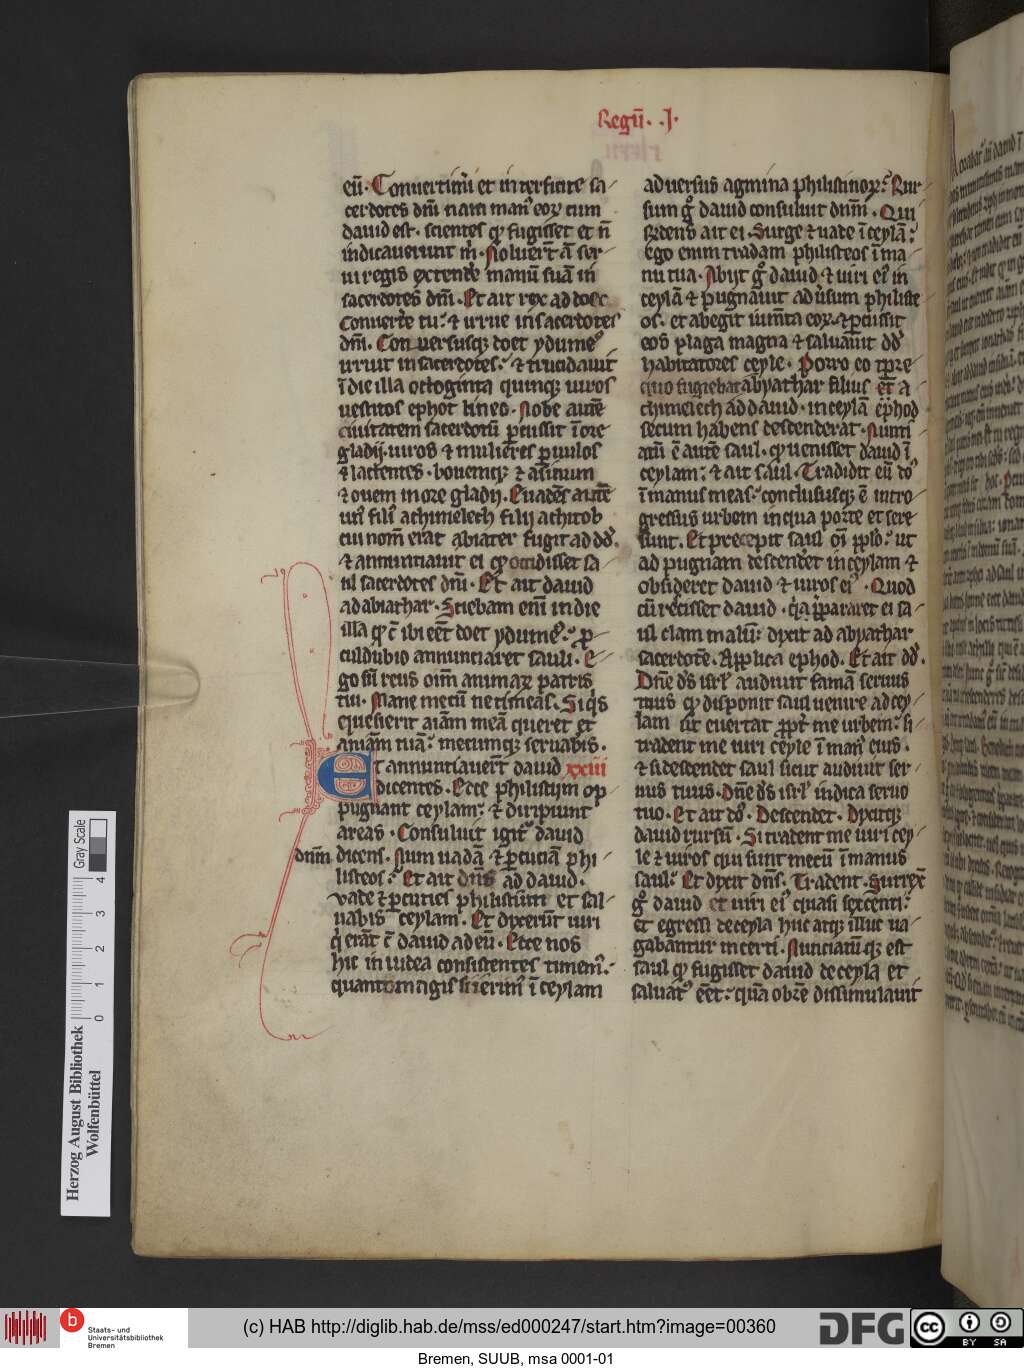 Regū. .I.
eū. Conuertimi et interficite sa
cerdotes dm̄i nam man' eoꝝ cum
dauid est. scientes qꝫ fugisset et n̄
indicauerunt m̄. Noluer̄t ā ser
ui regis extendē manū suā in
sacerdotes dm̄i. Et ait rex ad doec
Conuert̄e tu: ⁊ irrue in sacerdotes
dm̄i. Conuersusqꝫ doet ydume'
irruit in sacerdotes: ⁊ trucidauit
ī die illa octoginta quinqꝫ uiros
uestitos ephot lineo. Nobe autē
ciuitatem sacerdotū ꝑcussit ī ore
gladij. uiros ⁊ mulieres ꝑuulos
⁊ lactentes. bouemqꝫ ⁊ asinum
⁊ ouem in ore gladij. Euadēs autē
un' fili' achimelech filij achitob
cui nom̄ erat abiater fugit ad dd̄.
⁊ annuntiauit ei qꝫ occidisset sa
ul sacerdotes dm̄i. Et ait dauid
ad abiathar. Sciebam em̄ in die
illa qꝫ c̄ ibi eēt doet ydume': ꝙ
culdubio annunciaret sauli. E
go sū reus oīm animaꝝ patris
tui. Mane mecū ne timeas. Si q̇s
quesierit aīam meā queret et
aniām tuā: mecumqꝫ seruabis.
Et annuntiauer̄t dauid xxiii
dicentes. Ecce philistijm op
pugnant ceylam: ⁊ diripiunt
areas. Consuluit igit̄ dauid
dnm̄ dicens. Num uadā ⁊ ꝑcuciā phi
listeos: Et ait dn̄s ad dauid.
Vade ⁊ ꝑcuties philistiim et sal
uabis ceylam. Et dixerūt uiri
q̇ erāt c̄ dauid ad eū. Ecce nos
hic in iudea consistentes timem':
quantomagis si ierim' ī ceylam
aduersus agmina philistinoꝝ: Rur
sum g̊ dauid consuluit dnm̄. Qui
r̄ndens ait ei. Surge ⁊ uade ī ceylā:
ego enim tradam philisteos ī ma
nu tua. Abijt g̊ dauid ⁊ uiri ei' in
ceylā ⁊ pugnauit aduūsum philiste
os. et abegit iumta eoꝝ. ⁊ ꝑcussit
eos plaga magna ⁊ saluauit dd̄
habitatores ceyle. Porro eo tp̄re
quo fugiebat abyathar filius et̄ a
chimelech ad dauid. in ceylā ephod
secum habens descenderat. Nunti
atū ē autē saul. qꝫ uenisset dauid ī
ceylam: ⁊ ait saul. Tradidit eū dō'
ī manus meas: conclususqꝫ ē intro
gressus urbem in qua porte et sere
sunt. Et precepit saul oī pplō: ut
ad pugnam descenderet in ceylam ⁊
obsideret dauid ⁊ uiros ei'. Quod
cū resciisset dauid. q̇a p̄pararet ei sa
ul clam malū: dixit ad abyathar
sacerdotē. Applica ephod. Et ait dd̄.
Dn̄e ds̄ isrl̄ audiuit famā seruus
tuus qꝫ disponit saul uenire ad cey
lam ut euertat propt̄ me urbem: si
tradent me uiri ceyle ī man' eius.
⁊ si descendet saul sicut audiuit ser
uus tuus. Dn̄e ds̄ isrl̄ indica seruo
tuo. Et ait dō'. Descendet. Dixitqꝫ
dauid rursū. Si tradent me uiri cey
le ⁊ uiros qui sunt mecū ī manus
saul: Et dixit dn̄s. Tradent. Surrex̄
g̊ dauid et uiri ei' quasi sexcenti:
Et egressi de ceyla huc atqꝫ illuc ua
gabantur incerti. Nunciatūqꝫ est
saul qꝫ fugisset dauid de ceyla et
saluat' eēt: quā obrē dissimulauit
Gray Scale
0 1 2 3 4
Herzog August Bibliothek
Wolfenbüttel
b
Staats- und
Universitätsbibliothek
Bremen
(c) HAB http://diglib.hab.de/mss/ed000247/start.htm?image=00360
DFG
cc BY SA
Bremen, SUUB, msa 0001-01